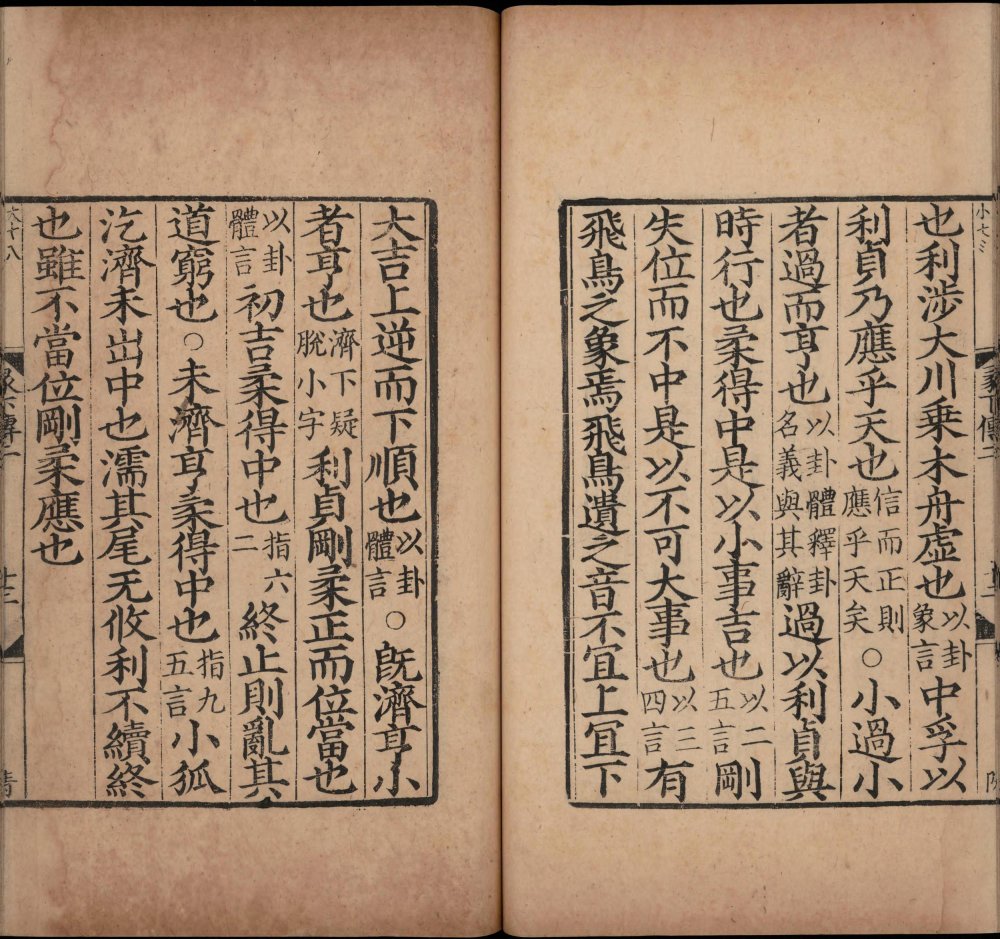 小七三
也利涉大川乗木舟虛也以卦象言中孚以
利貞乃應乎天也信而正則應乎天矣○小過小
者過而亨也以卦體釋卦名義與其辭過以利貞與
時行也柔得中是以小事吉也以二五言剛
失位而不中是以不可大事也以三四言有
飛鳥之象焉飛鳥遺之音不冝上冝下
大吉上逆而下順也以卦體言○旣濟亨小
者亨也濟下疑脫小字利貞剛柔正而位當也
以卦體言初吉柔得中也指六二終止則亂其
道窮也○未濟亨柔得中也指九五言小狐
汔濟未出中也濡其尾无攸利不續終
也雖不當位剛柔應也
大廿八